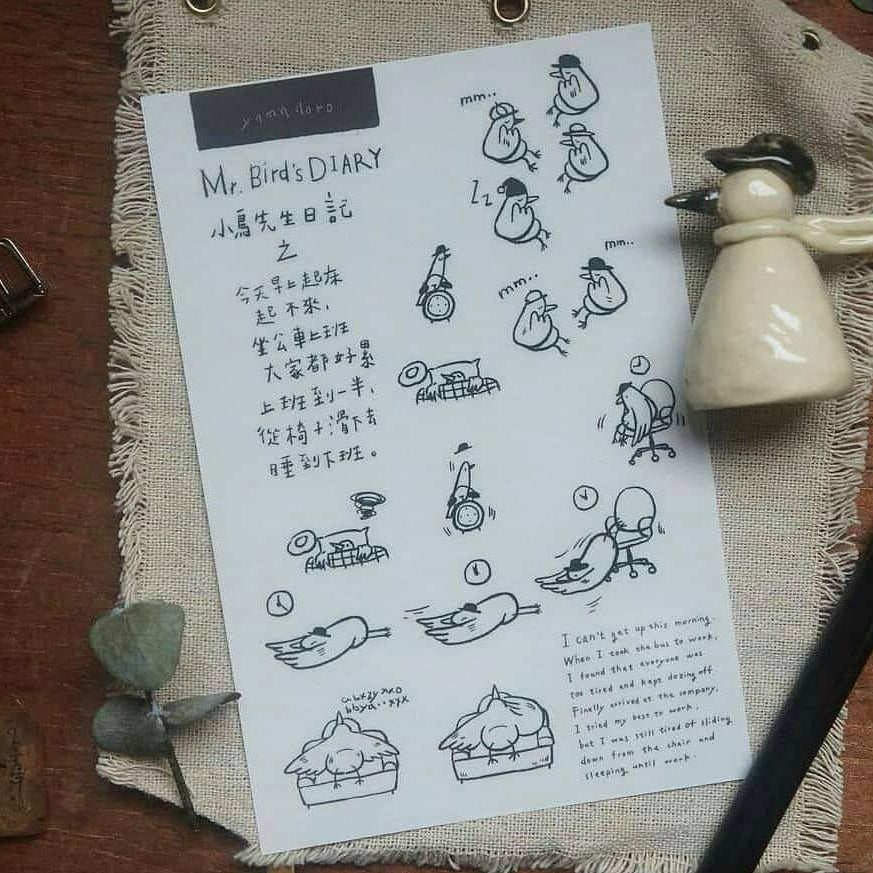 yamadoro
Mr. Bird's DIARY
小鳥先生日記
之
今天早上起床
起不來，
坐公車上班
大家都好累
上班到一半，
從椅子滑下去
睡到下班。
mm..
Zz
mm..
mm..
I can't get up this morning.
When I took the bus to work,
I found that everyone was
too tired and kept dozing off.
Finally arrived at the company,
I tried my best to work,
but I was still tired of sliding
down from the chair and
sleeping until work.